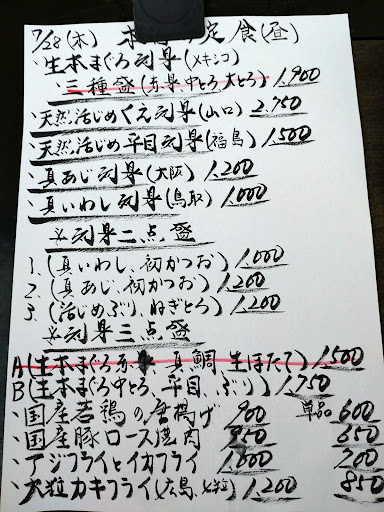 7/28(木) 本日の定食(昼)
、生本まぐろ刺身(メキシコ)
、三種盛(赤身中とろ大とろ) 1,900
、天然活じめくえ刺身(山口) 2,750
、天然活じめ平目刺身(福島) 1,500
、真あじ刺身(大阪) 1,200
、真いわし刺身(鳥取) 1,000
※刺身二点盛
1. (真いわし、初かつお) 1,000
2. (真あじ、初かつお) 1,200
3. (活じめぶり、ねぎとろ) 1,200
※刺身三点盛
A(生本まぐろ赤身 真鯛 生ほたて) 1,500
B(生本まぐろ中とろ、平目、ぶり) 1,750
、国産若鶏の唐揚げ 900 単品 600
、国産豚ロース焼肉 950 650
、アジフライとイカフライ 1,000 700
、大粒カキフライ(広島、5粒) 1,200 850